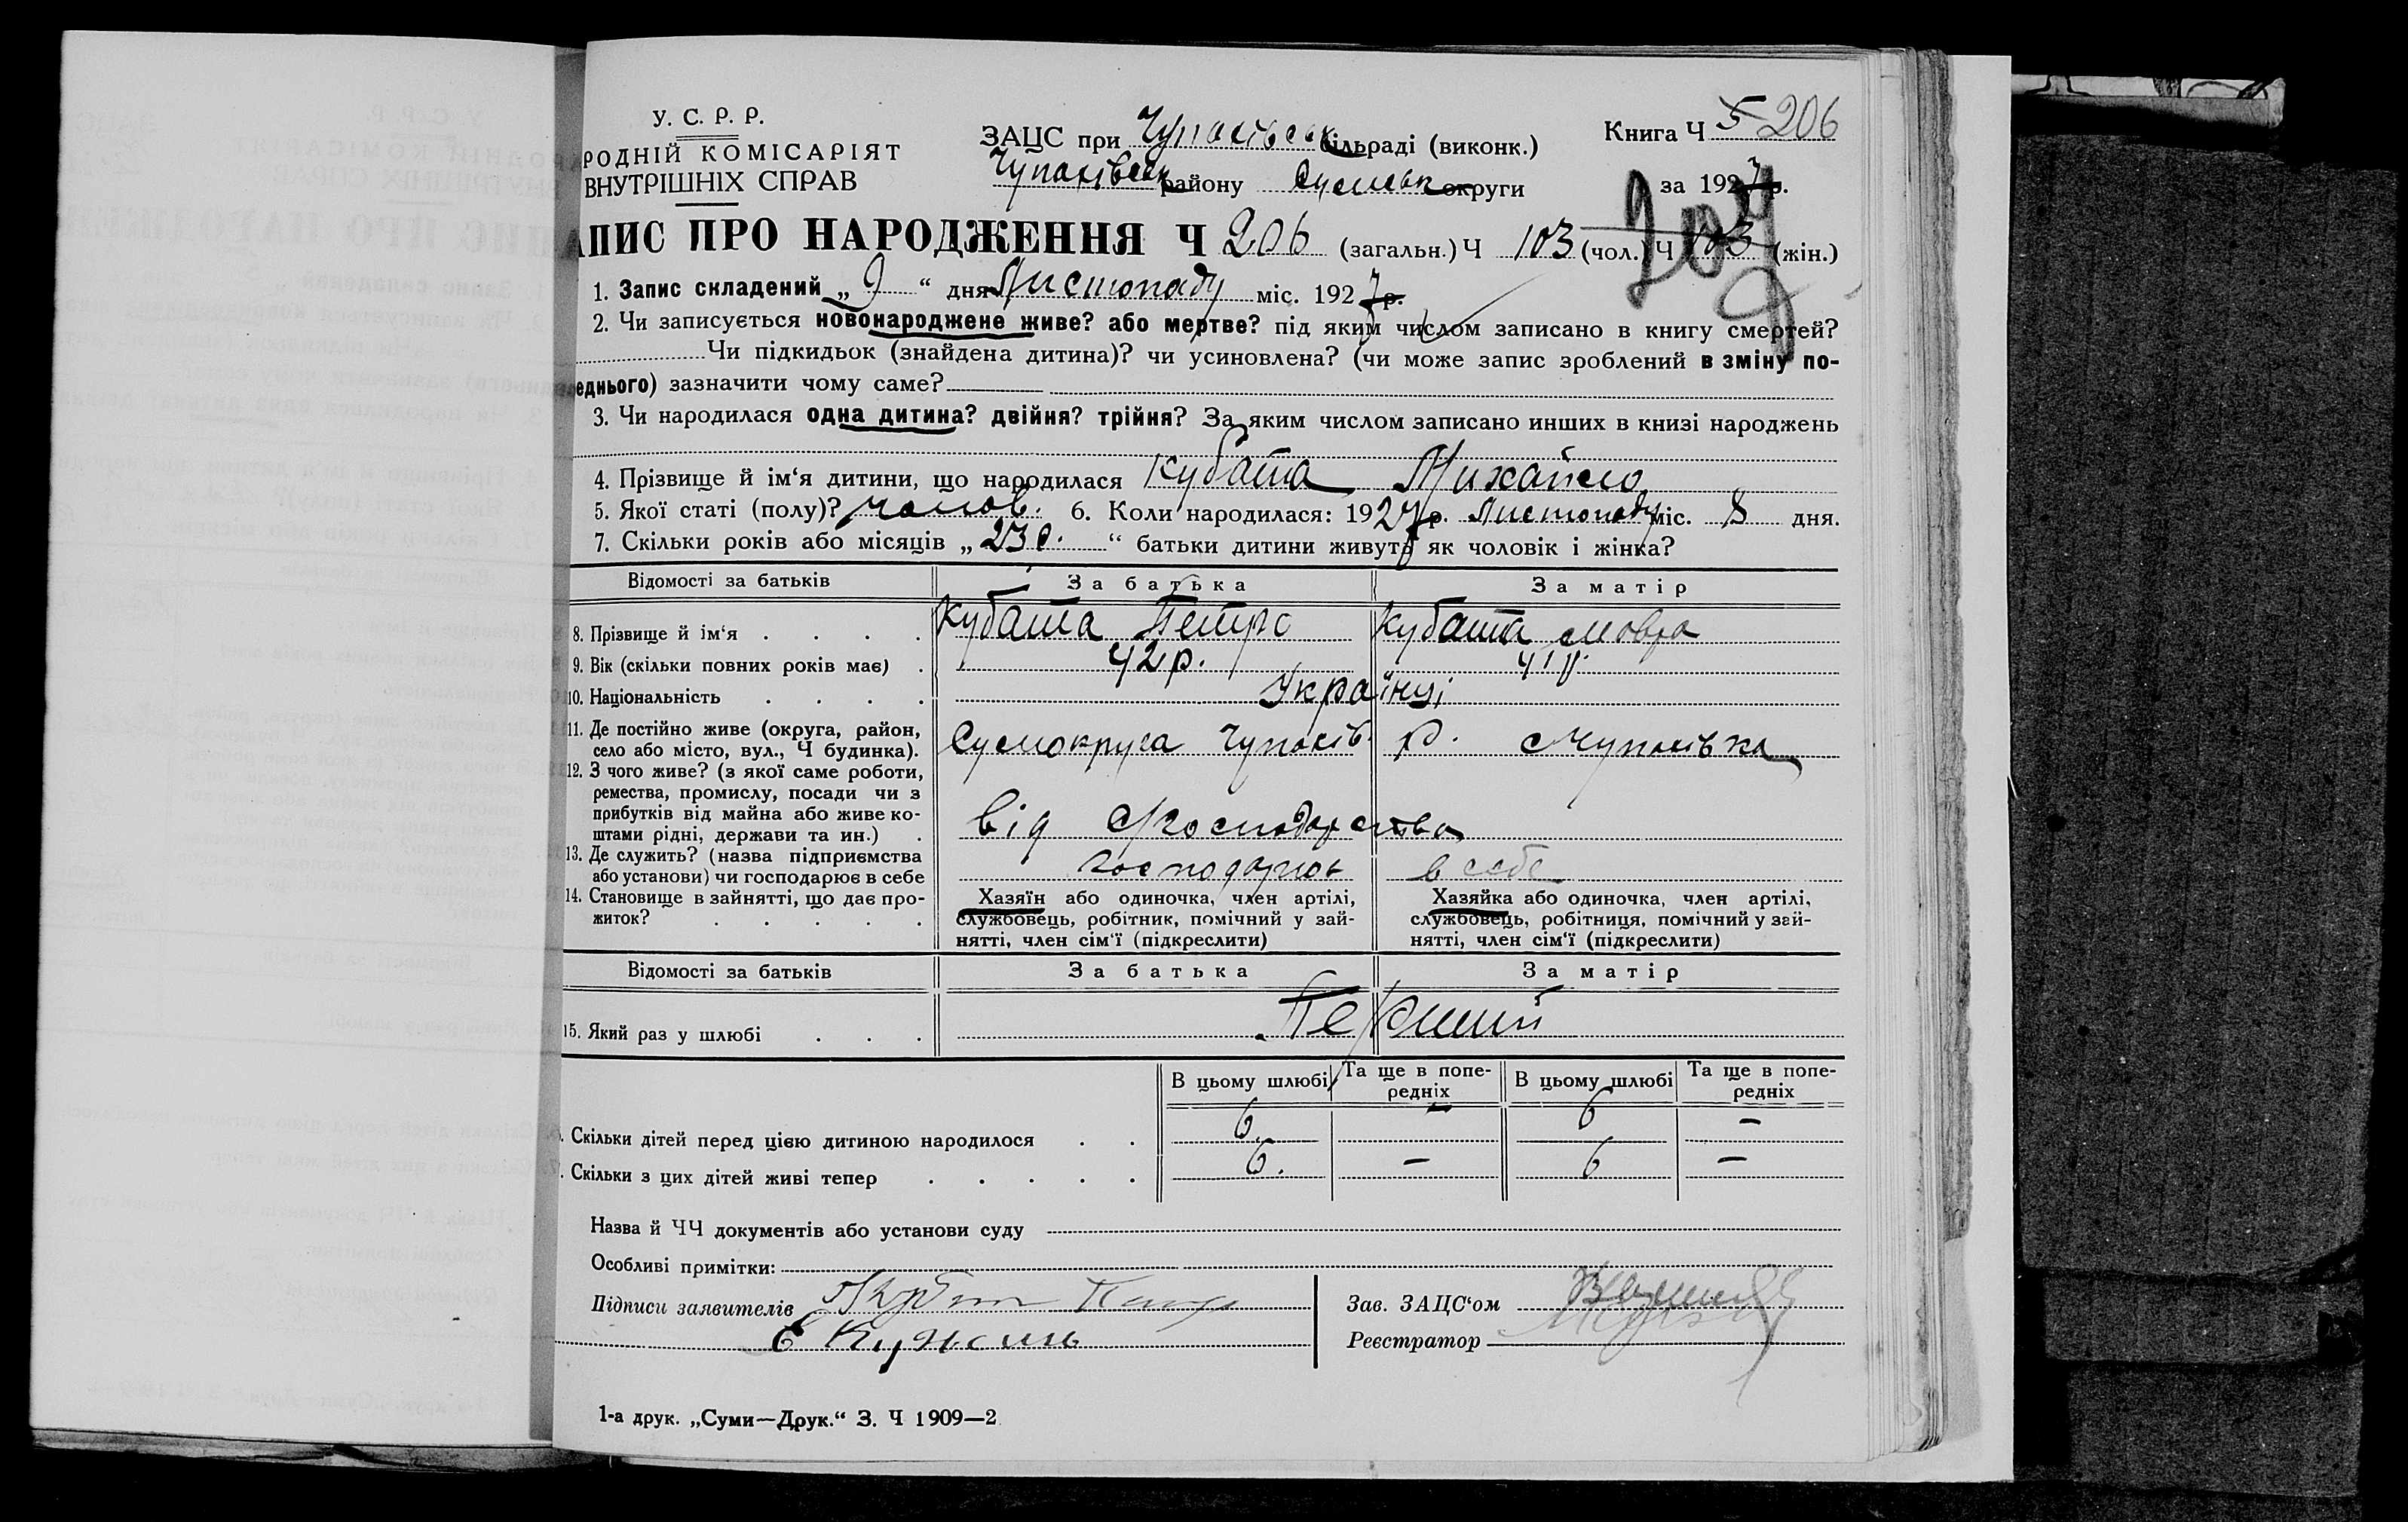 У. С. Р. Р.
РОДНІЙ КОМІСАРІЯТ
ВНУТРІШНІХ СПРАВ
ЗАЦС при Чупахівськ сільраді (виконк.)
Чупахівськ району Сумськ округи
Книга Ч 5 206
за 1927 р.
209
АПИС ПРО НАРОДЖЕННЯ Ч 206 (загальн.) Ч 103 (чол.) Ч 103 (жін.)
1. Запис складений „ 9 “ дня Листопаду міс. 1927 р.
2. Чи записується новонароджене живе? або мертве? під яким числом записано в книгу смертей?
Чи підкидьок (знайдена дитина)? чи усиновлена? (чи може запис зроблений в зміну по-
еднього) зазначити чому саме?
3. Чи народилася одна дитина? двійня? трійня? За яким числом записано инших в книзі народжень
4. Прізвище й ім‘я дитини, що народилася Кубата Михайло
5. Якої статі (полу)? чолов. 6. Коли народилася: 1927 р. Листопаду міс. 8 дня.
7. Скільки років або місяців „ 23 р. “ батьки дитини живуть як чоловік і жінка?
Відомості за батьків За батька За матір
8. Прізвище й ім‘я . . . . Кубата Петро Кубата Мовра
9. Вік (скільки повних років має) . 42 р. 41 р.
10. Національність . . . . Українці
11. Де постійно живе (округа, район,
село або місто, вул., Ч будинка). Сумокруга Чупахів. р. с Чупахівка
12. З чого живе? (з якої саме роботи,
ремества, промислу, посади чи з
прибутків від майна або живе ко-
штами рідні, держави та ин.) . від господарства
13. Де служить? (назва підприємства
або установи) чи господарює в себе господарюв в себе
14. Становище в зайнятті, що дає про-
житок? . . . . .
Хазяїн або одиночка, член артілі,
службовець, робітник, помічний у зай-
нятті, член сім‘ї (підкреслити)
Хазяйка або одиночка, член артілі,
службовець, робітниця, помічний у зай-
нятті, член сім‘ї (підкреслити)
Відомості за батьків За батька За матір
15. Який раз у шлюбі . . . Перший
В цьому шлюбі Та ще в попе-
редніх В цьому шлюбі Та ще в попе-
редніх
. Скільки дітей перед цією дитиною народилося . . 6. — 6 —
. Скільки з цих дітей живі тепер . . . . . 6. — 6 —
Назва й ЧЧ документів або установи суду
Особливі примітки:
Підписи заявителів
Зав. ЗАЦС‘ом
Реєстратор
1-а друк. „Суми—Друк.“ З. Ч 1909—2